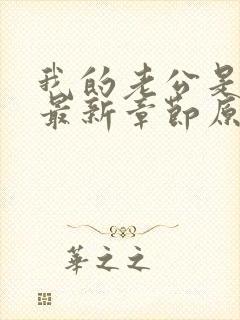 我的老公是
最新章節原
華之之